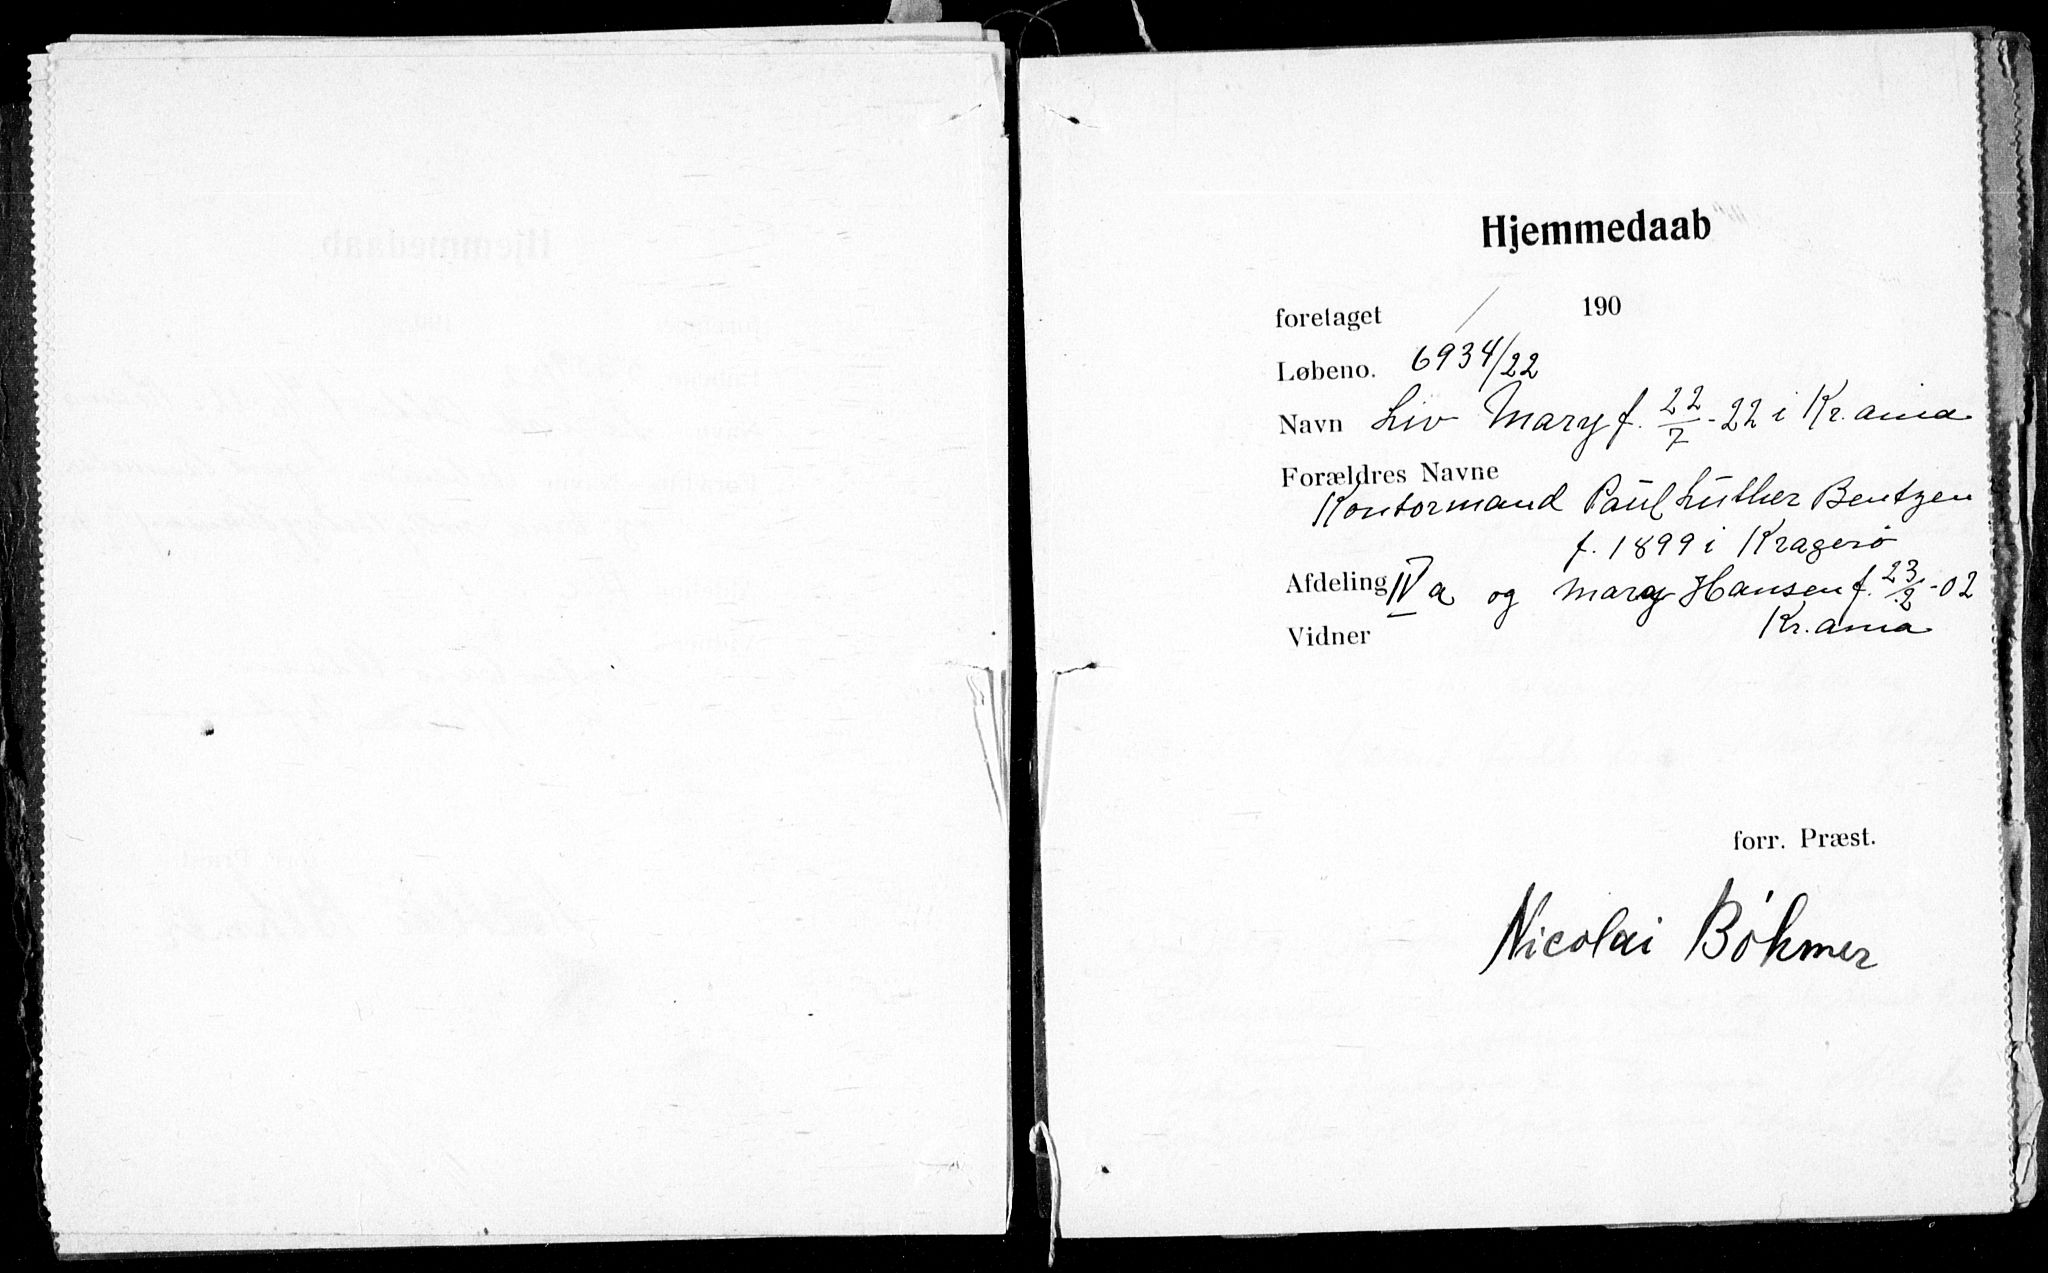 Hjemmedaab
foretaget / 190
Løbeno. 6934/22
Navn Liv Mary f. 22/7-22 i Kr.ania
Forældres Navne
Kontormand Paul Luther Bentzen
f. 1899 i Kragerø
Afdeling IV a og Mary Hansen f. 23/2-02
Kr.ania
Vidner
forr. Præst.
Nicolai Bøhmer